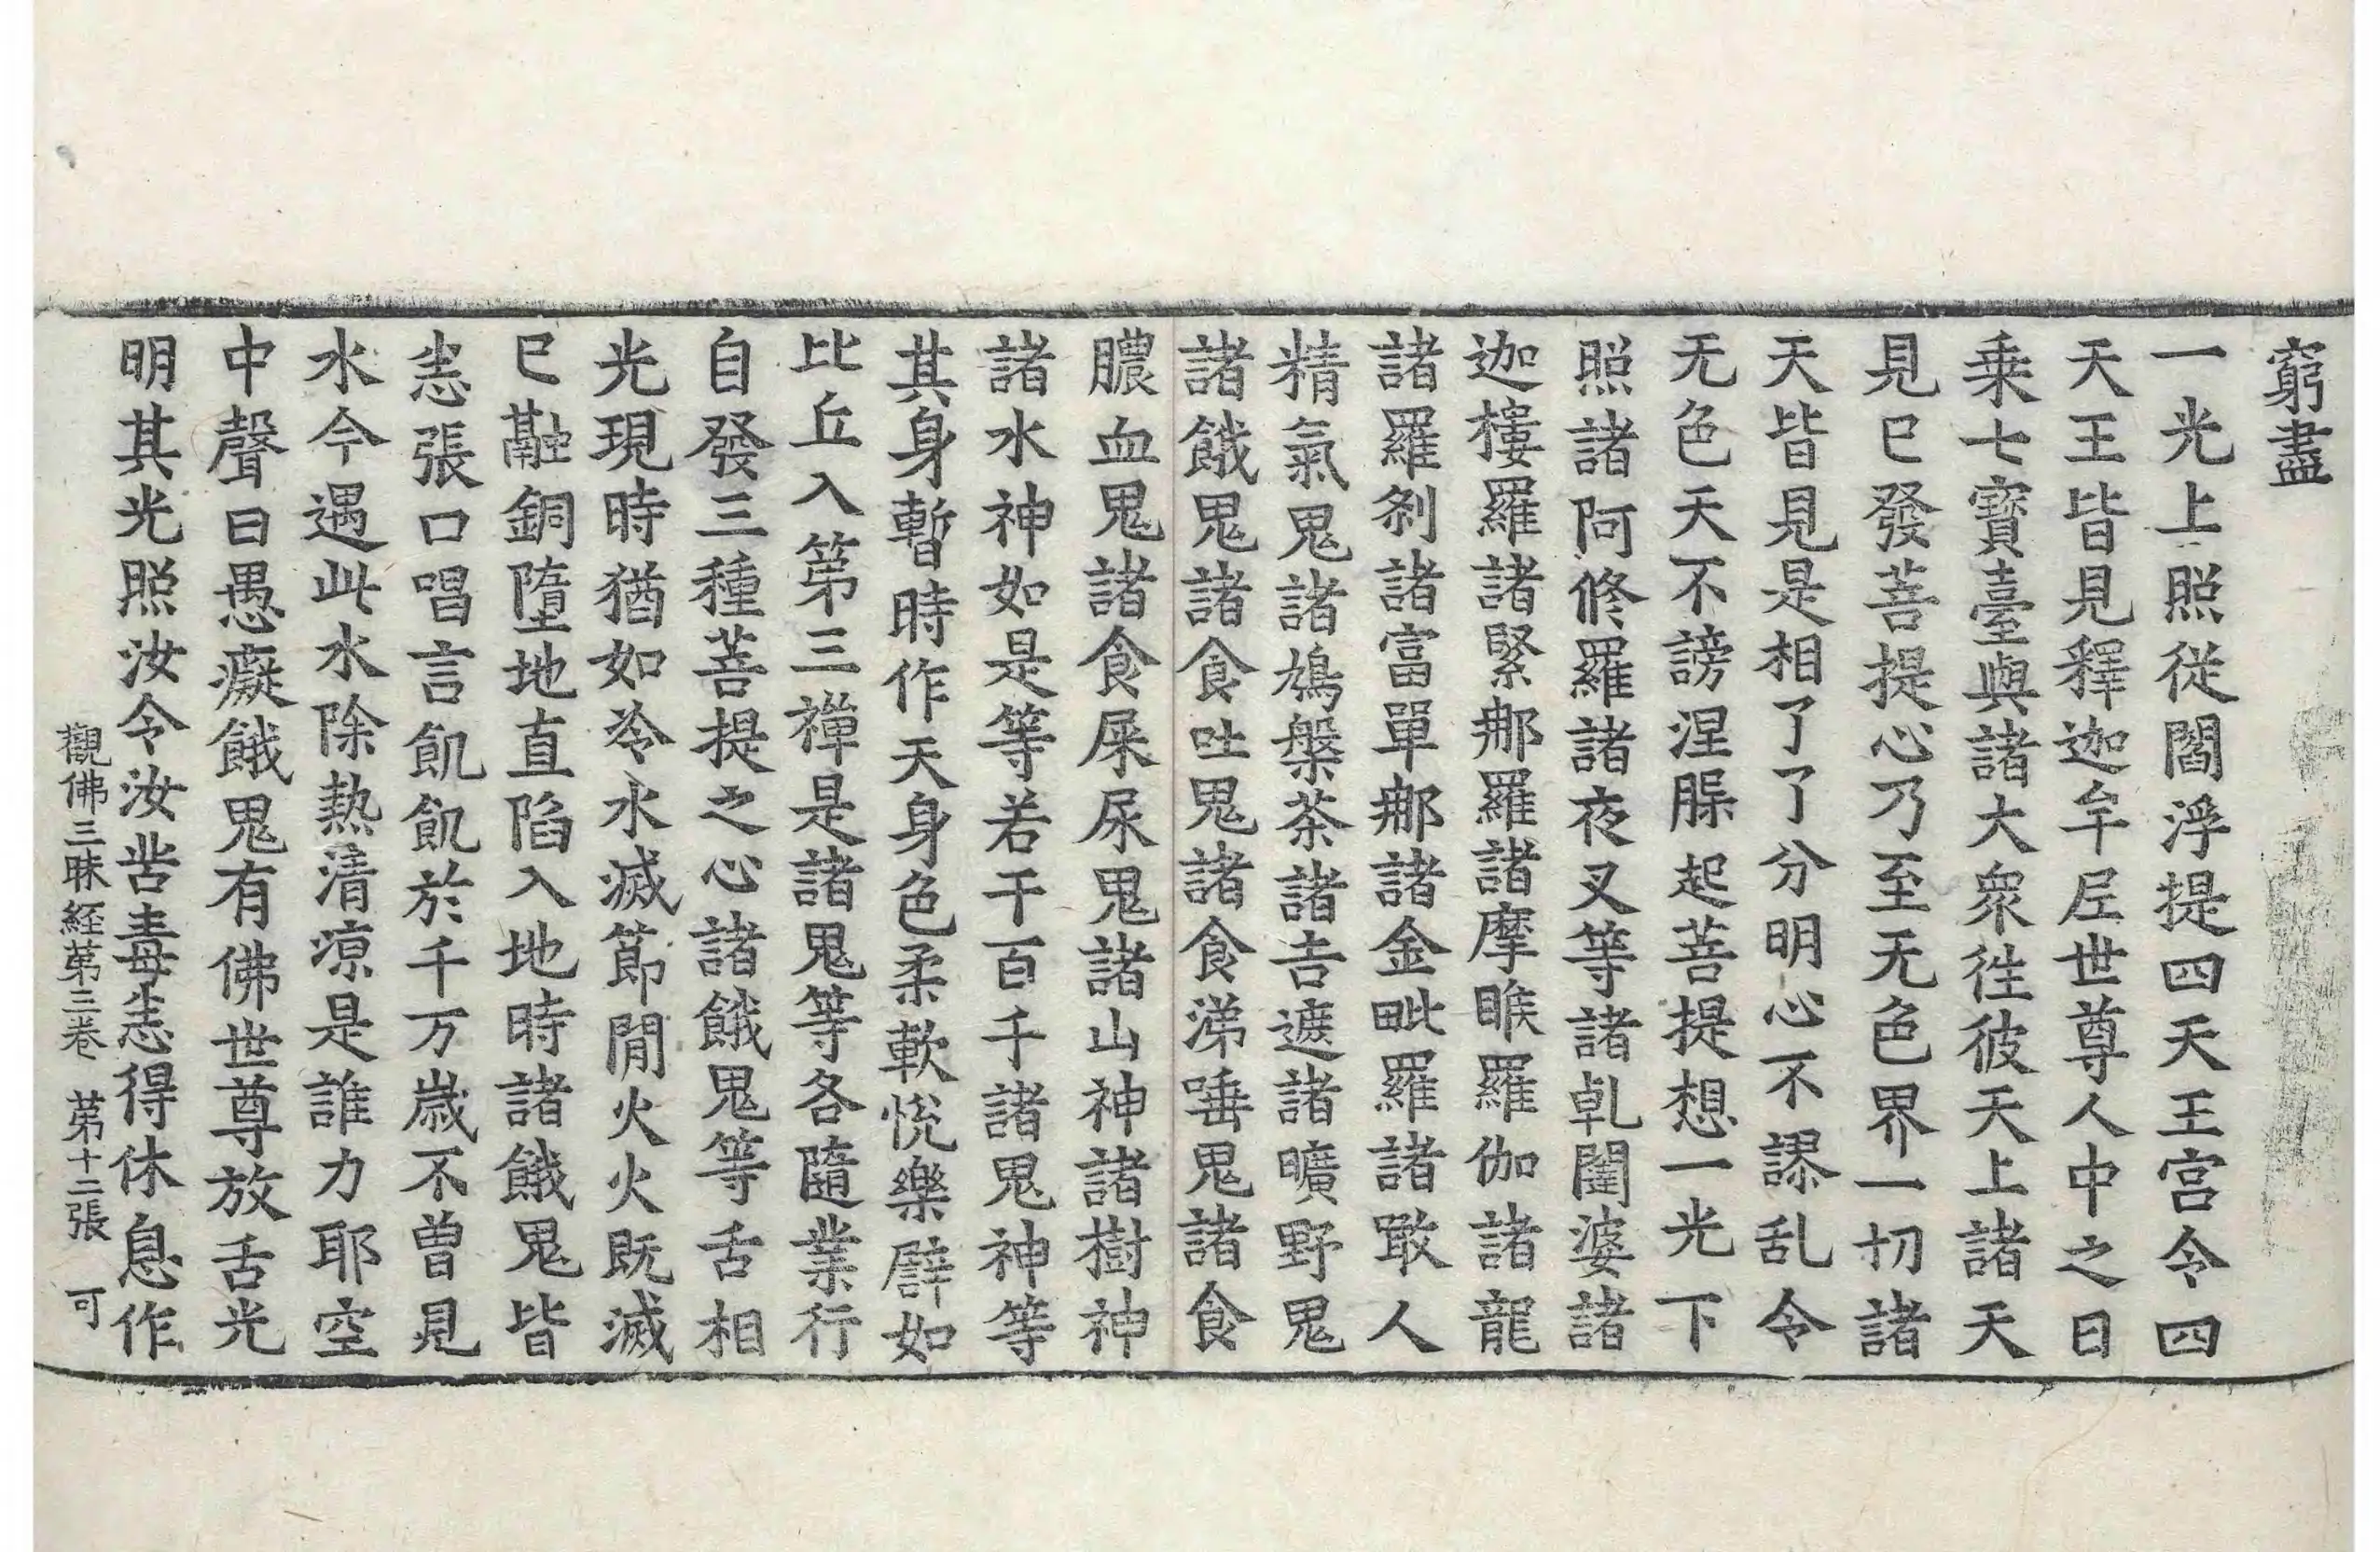 窮盡
一光上照從閻浮提四天王宮令四
天王皆見釋迦牟尼世尊人中之日
乗七寶臺與諸大衆徃彼天上諸天
見已發菩提心乃至无色界一切諸
天皆見是相了了分明心不謬乱令
无色天不謗涅槃起菩提想一光下
照諸阿修羅諸夜叉等諸乹闥婆諸
迦樓羅諸緊那羅諸摩睺羅伽諸龍
諸羅刹諸富單那諸金毗羅諸噉人
精氣鬼諸鳩槃荼諸吉遮諸曠野鬼
諸餓鬼諸食吐鬼諸食涕唾鬼諸食
膿血鬼諸食屎尿鬼諸山神諸樹神
諸水神如是等若干百千諸鬼神等
其身暫時作天身色柔軟悅樂譬如
比丘入第三禪是諸鬼等各隨業行
自發三種菩提之心諸餓鬼等舌相
光現時猶如冷水滅節間火火既滅
已融銅墮地直陷入地時諸餓鬼皆
悉張口唱言飢飢於千万歲不曽見
水今遇此水除熱清凉是誰力耶空
中聲曰愚癡餓鬼有佛世尊放舌光
明其光照汝令汝苦毒悉得休息作
觀佛三昧經第三卷 第十二張 可